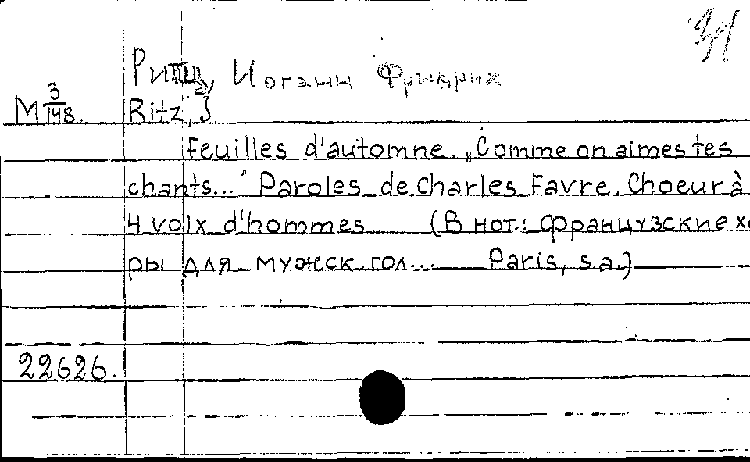 Ритц, Иоганн Фридрих
М 3/148. Ritz, J
Feuilles d'automne. „Comme on aimes tes
chants..." Paroles de Charles Favre. Choeur à
4 voix d'hommes (В нот.: Французские хо
ры для мужск. гол... Paris, s.a.)
22626.